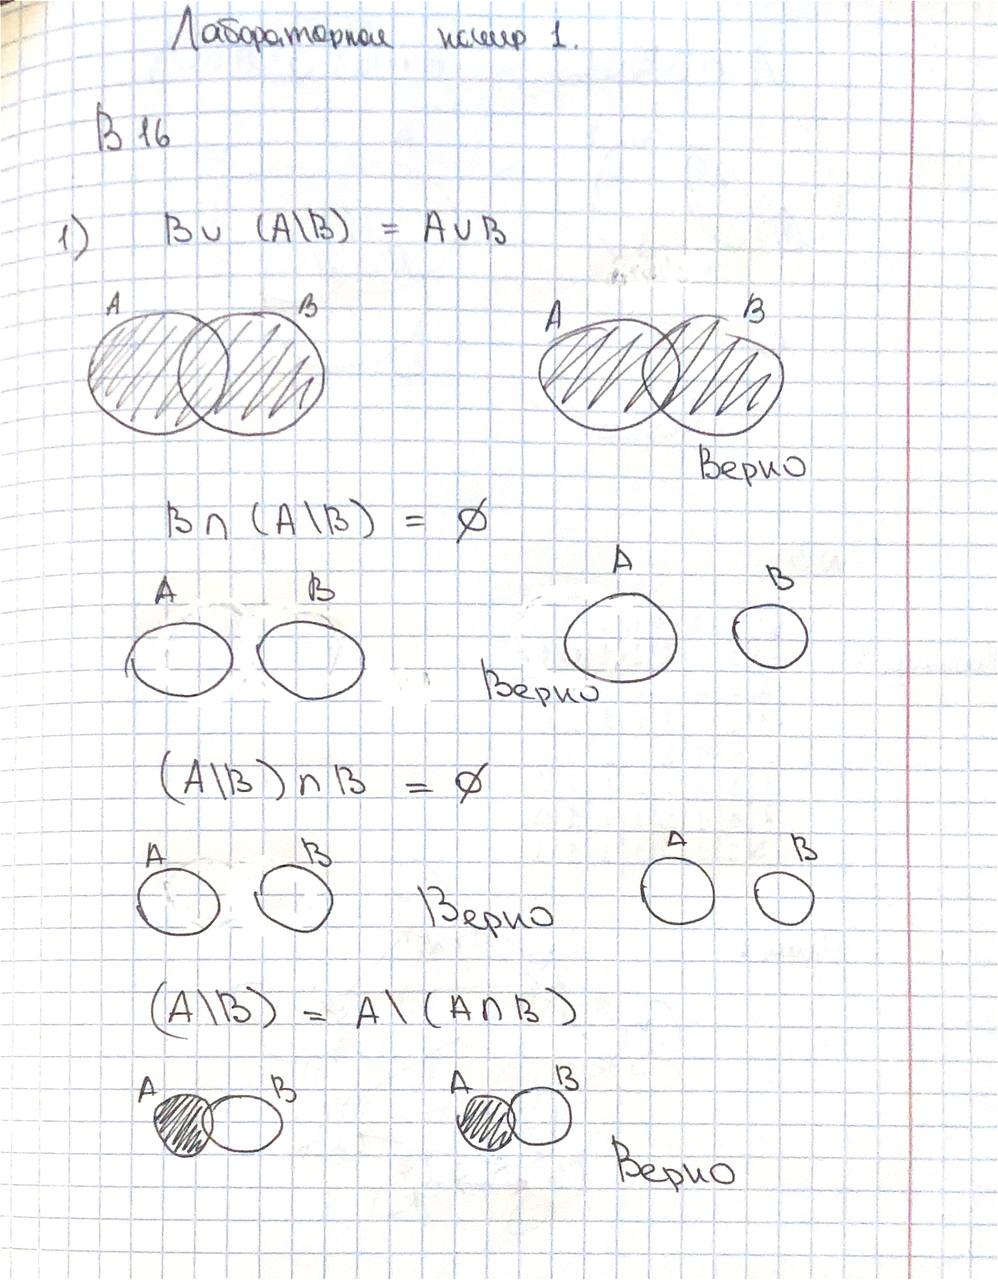 Лабораторная номер 1.
В 16
1) B∪ (A\B) = A∪B
A B A B
Верно
B∩ (A\B) = ∅
A B A B
Верно
(A\B)∩B = ∅
A B A B
Верно
(A\B) = A\(A∩B)
A B A B
Верно